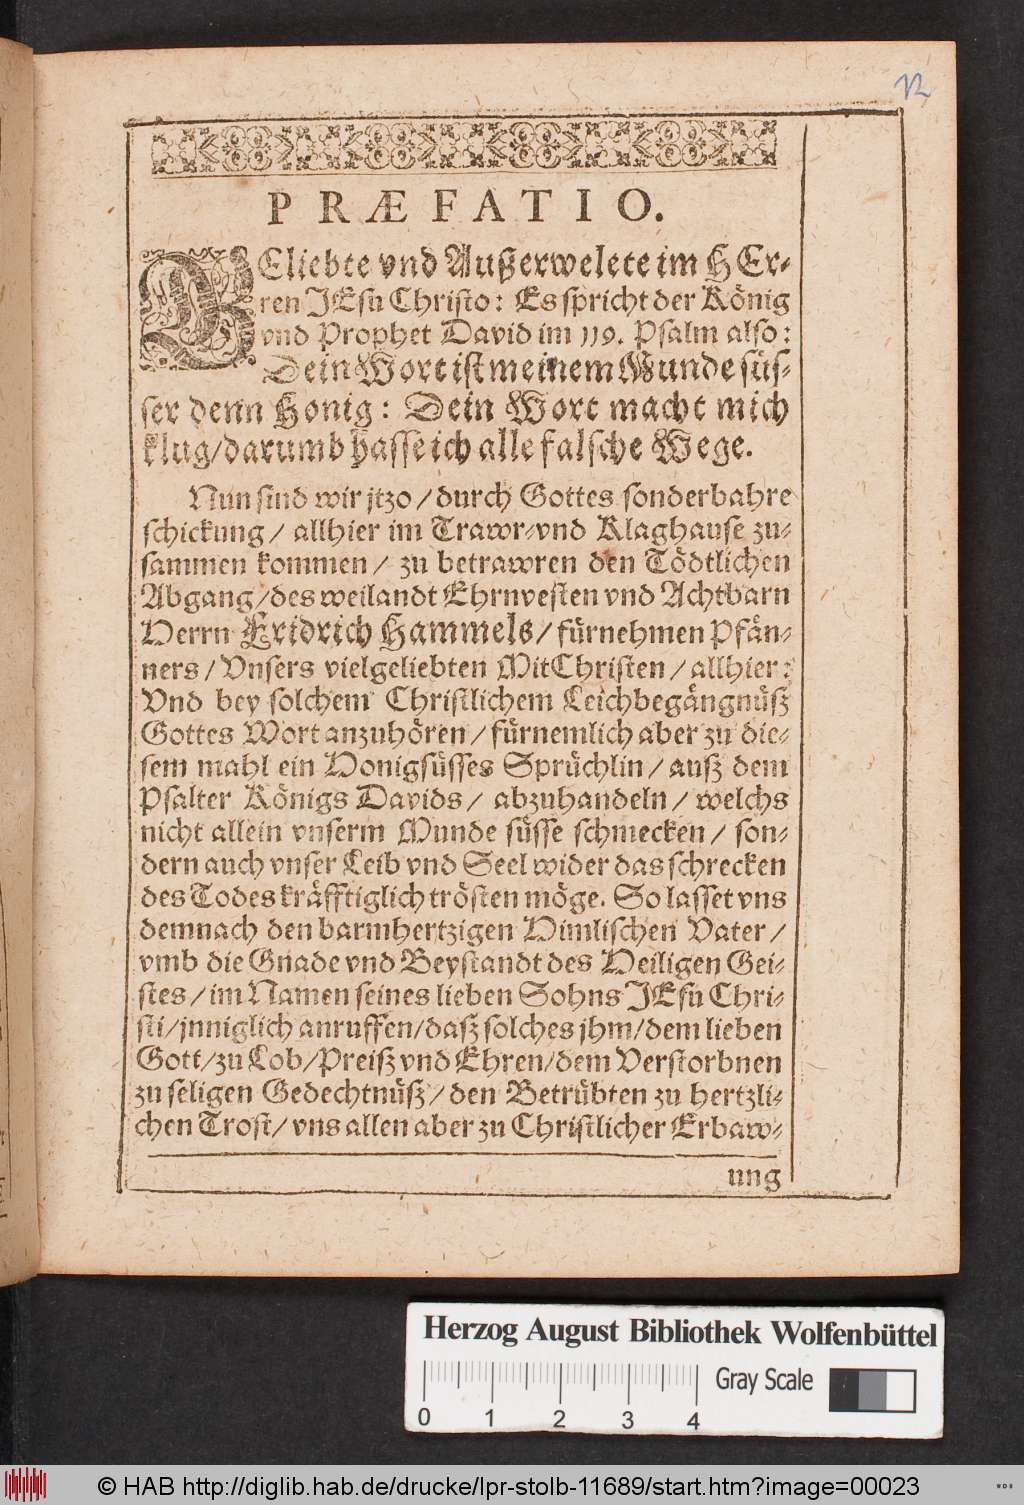 12
PRÆFATIO.
GEliebte vnd Außerwelete im HEr-
ren JEsu Christo: Es spricht der König
vnd Prophet David im 119. Psalm also:
Dein Wort ist meinem Munde süs-
ser denn Honig: Dein Wort macht mich
klug/darumb hasse ich alle falsche Wege.
Nun sind wir jtzo/durch Gottes sonderbahre
schickung/ allhier im Trawr-vnd Klaghause zu-
sammen kommen/ zu betrawren den Tödtlichen
Abgang/des weilandt Ehrnvesten vnd Achtbarn
Herrn Fridrich Hammels/fürnehmen Pfän-
ners/Vnsers vielgeliebten MitChristen/allhier:
Vnd bey solchem Christlichem Leichbegängnüß
Gottes Wort anzuhören/fürnemlich aber zu die-
sem mahl ein Honigsüsses Sprüchlin/auß dem
Psalter Königs Davids/ abzuhandeln/ welchs
nicht allein vnserm Munde süsse schmecken/ son-
dern auch vnser Leib vnd Seel wider das schrecken
des Todes kräfftiglich trösten möge. So lasset vns
demnach den barmhertzigen Himlischen Vater/
vmb die Gnade vnd Beystandt des Heiligen Gei-
stes/im Namen seines lieben Sohns JEsu Chri-
sti/jnniglich anruffen/daß solches jhm/dem lieben
Gott/zu Lob/Preiß vnd Ehren/dem Verstorbnen
zu seligen Gedechtnüß/den Betrübten zu hertzli-
chen Trost/vns allen aber zu Christlicher Erbaw-
ung
Herzog August Bibliothek Wolfenbüttel
Gray Scale
0 1 2 3 4
© HAB http://diglib.hab.de/drucke/lpr-stolb-11689/start.htm?image=00023